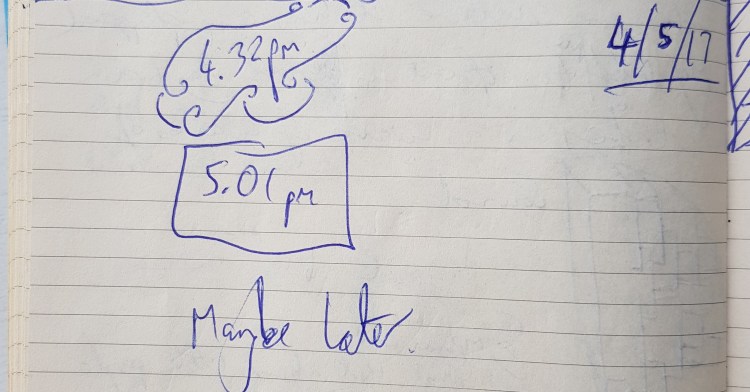 4/5/17
4.32pm
5.01pm
Maybe Later.